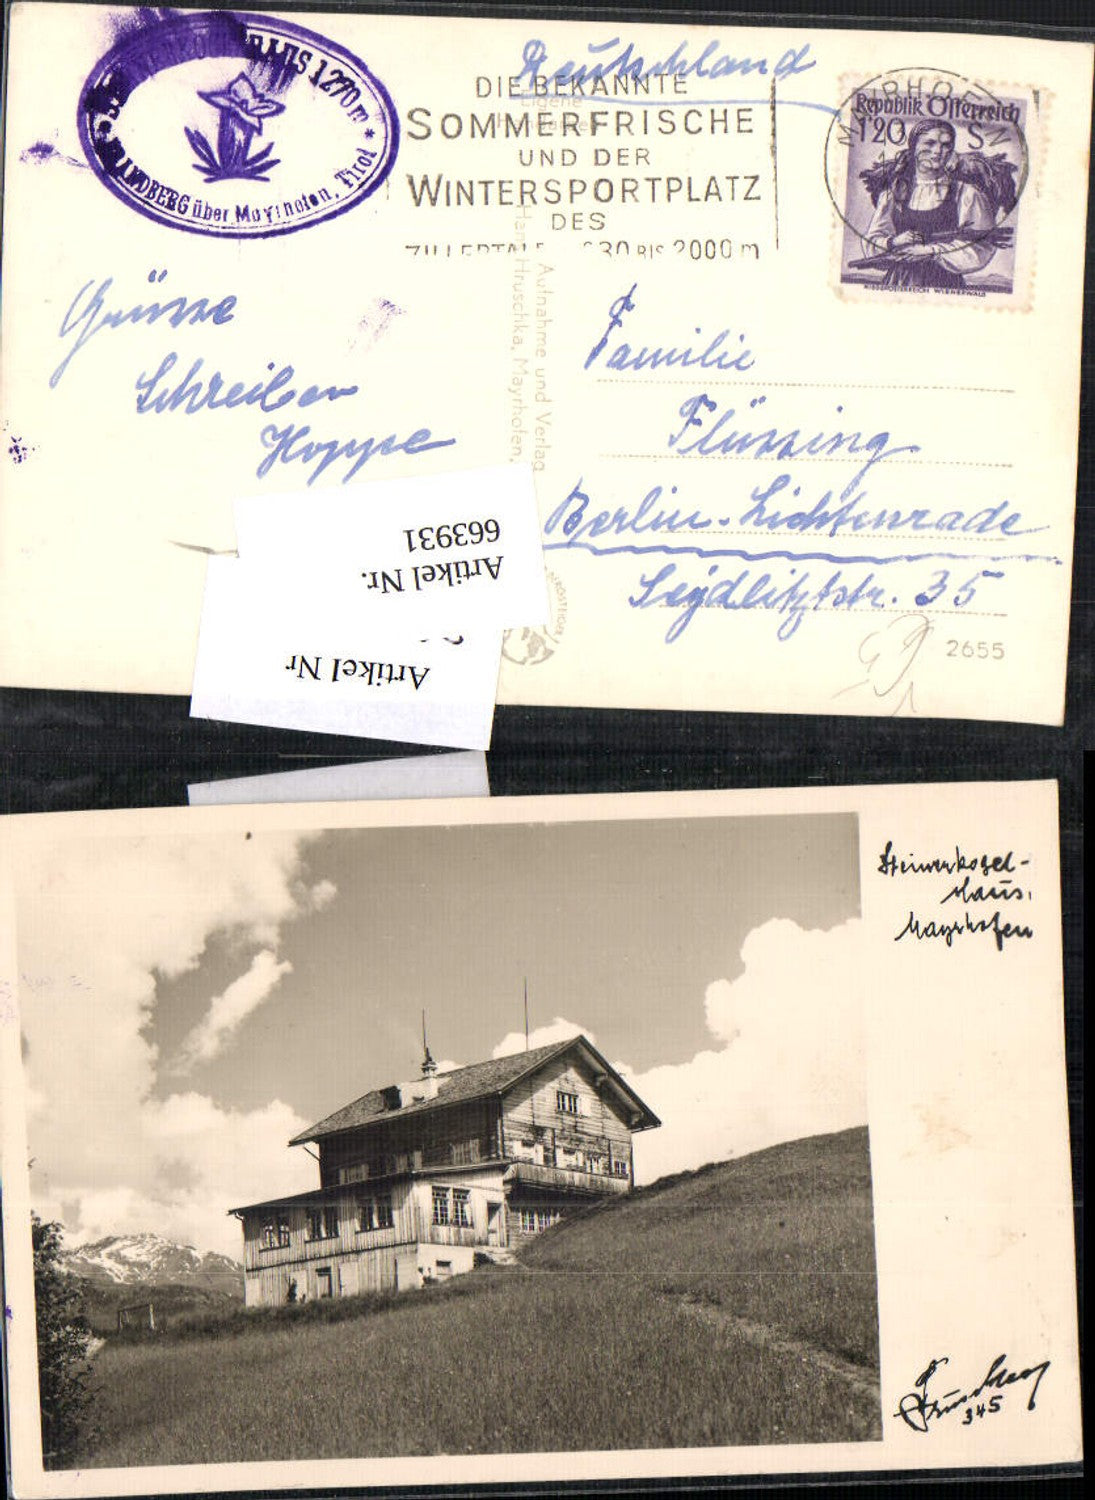 1270m *
BRANDBERG über Mayrhofen, Tirol
Deutschland
DIE BEKANNTE
SOMMERFRISCHE
UND DER
WINTERSPORTPLATZ
DES
ZILLERTALES 630 BIS 2000 m
MAYRHOFEN
Republik Österreich
1'20 S
NIEDERÖSTERREICH WIENERWALD
Eigene
Aufnahme und Verlag
Hans Hruschka, Mayrhofen,
Grüsse
Schreiber
Hoppe
Familie
Flüssing
Berlin-Lichtenrade
Seydlitzstr. 35
2655
Artikel Nr.
663931
Artikel Nr
Steinerkogel-
Haus.
Mayrhofen
Hruschka
345